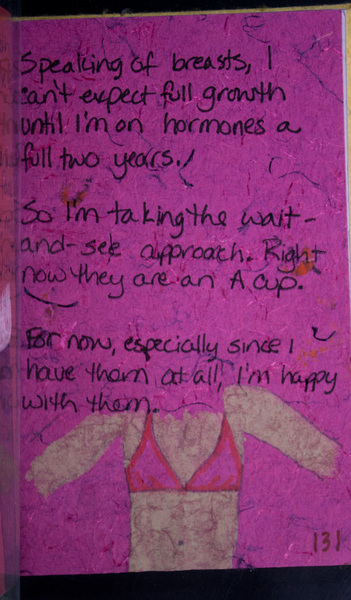 Speaking of breasts, I
can't expect full growth
until I'm on hormones a
full two years.
So I'm taking the wait-
and-see approach. Right
now they are an A cup.
For now, especially since I
have them at all, I'm happy
with them.
131